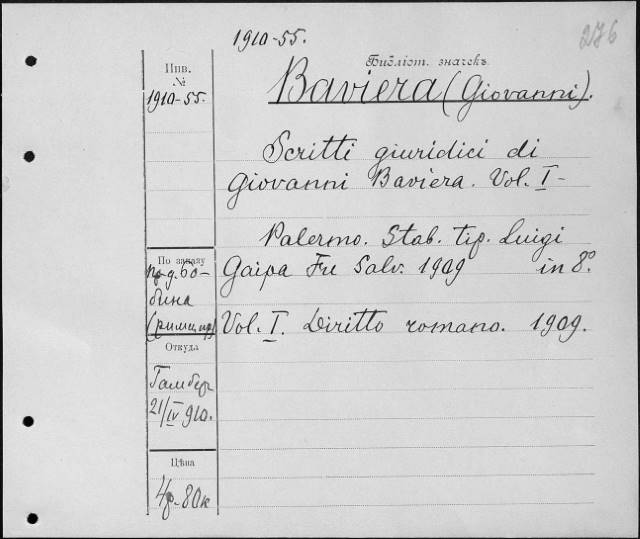 1910-55.
276
Библіот. значекъ
Инв.
№
1910-55.
Baviera (Giovanni).
Scritti giuridici di
Giovanni Baviera. Vol. I-
Palermo. Stab. tip. Luigi
По заказу
пр-д. Бо-
Gaipa Fu Salv. 1909 in 8º.
бина
(римс. пр.)
Vol. I. Diritto romano. 1909.
Откуда
Гамбер
21/IV 910.
Цѣна
4р. 80к